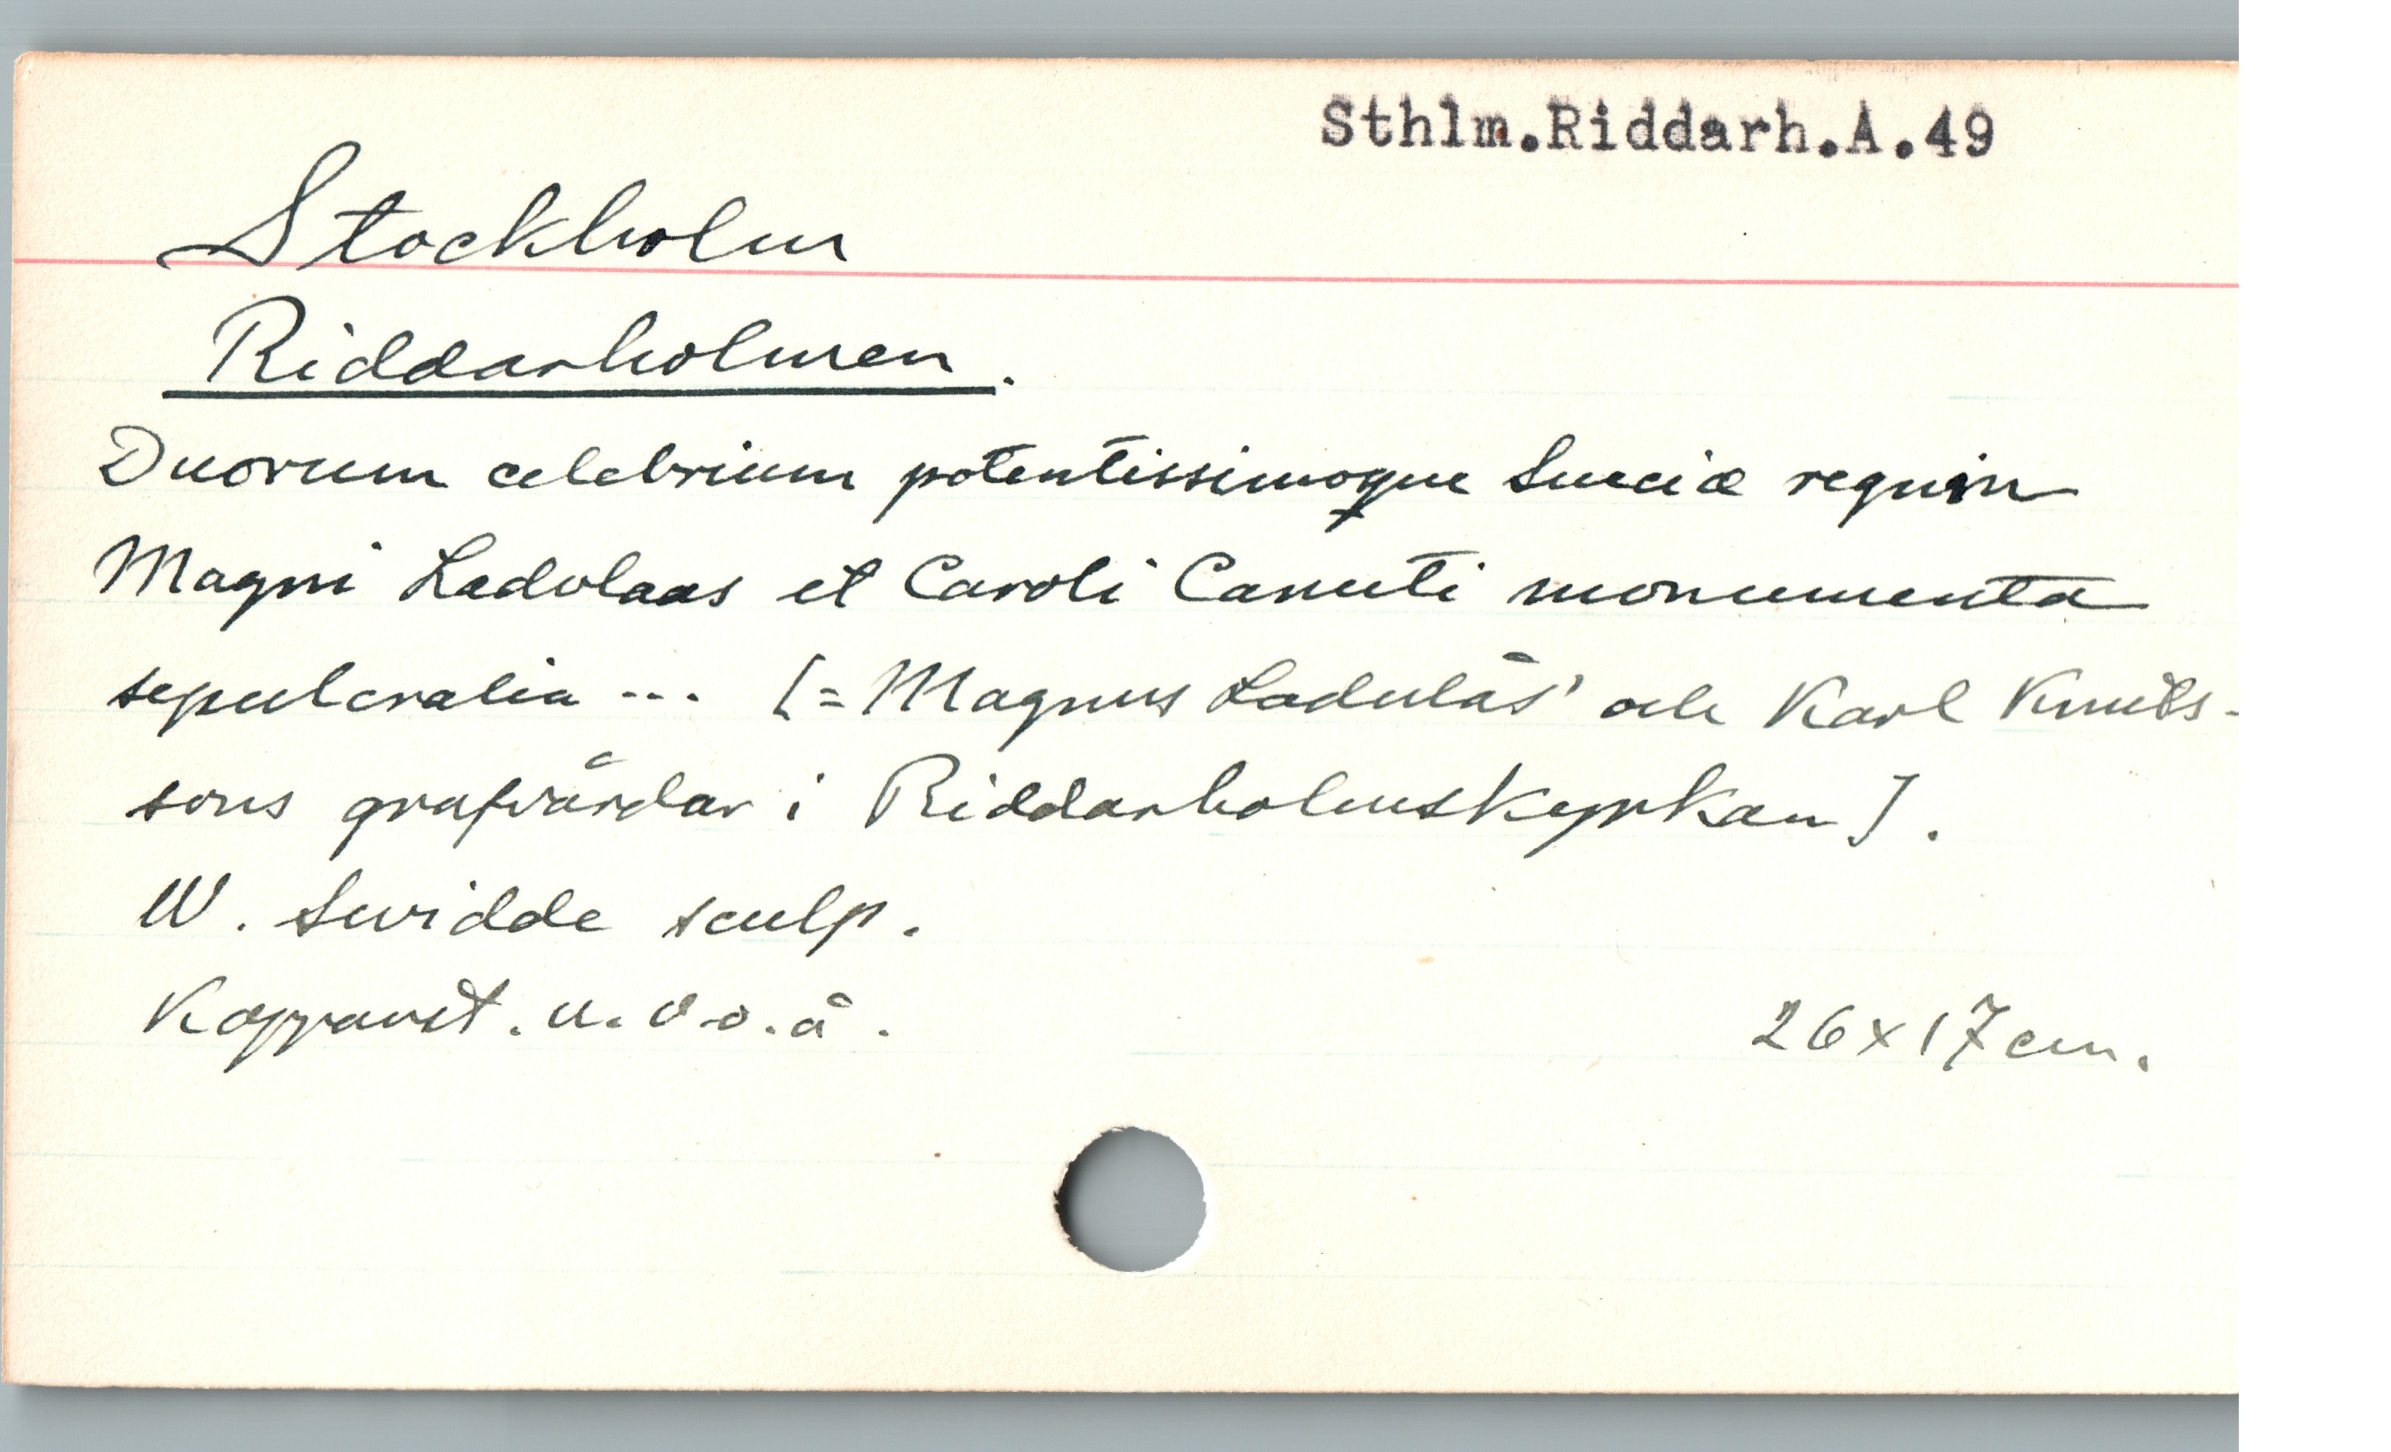 Sthlm.Riddarh.A.49
Stockholm
Riddarholmen.
Duorum celebrium potentissimoque Sueciæ regum
Magni Ladvlaas et Caroli Canuti monumenta
sepulcralia ... [= Magnus Ladulås' och Karl Knuts-
sons grafvårdar i Riddarholmskyrkan].
W. Swidde sculp.
Kopparst. u. o. o. å.
26 x 17 cm.